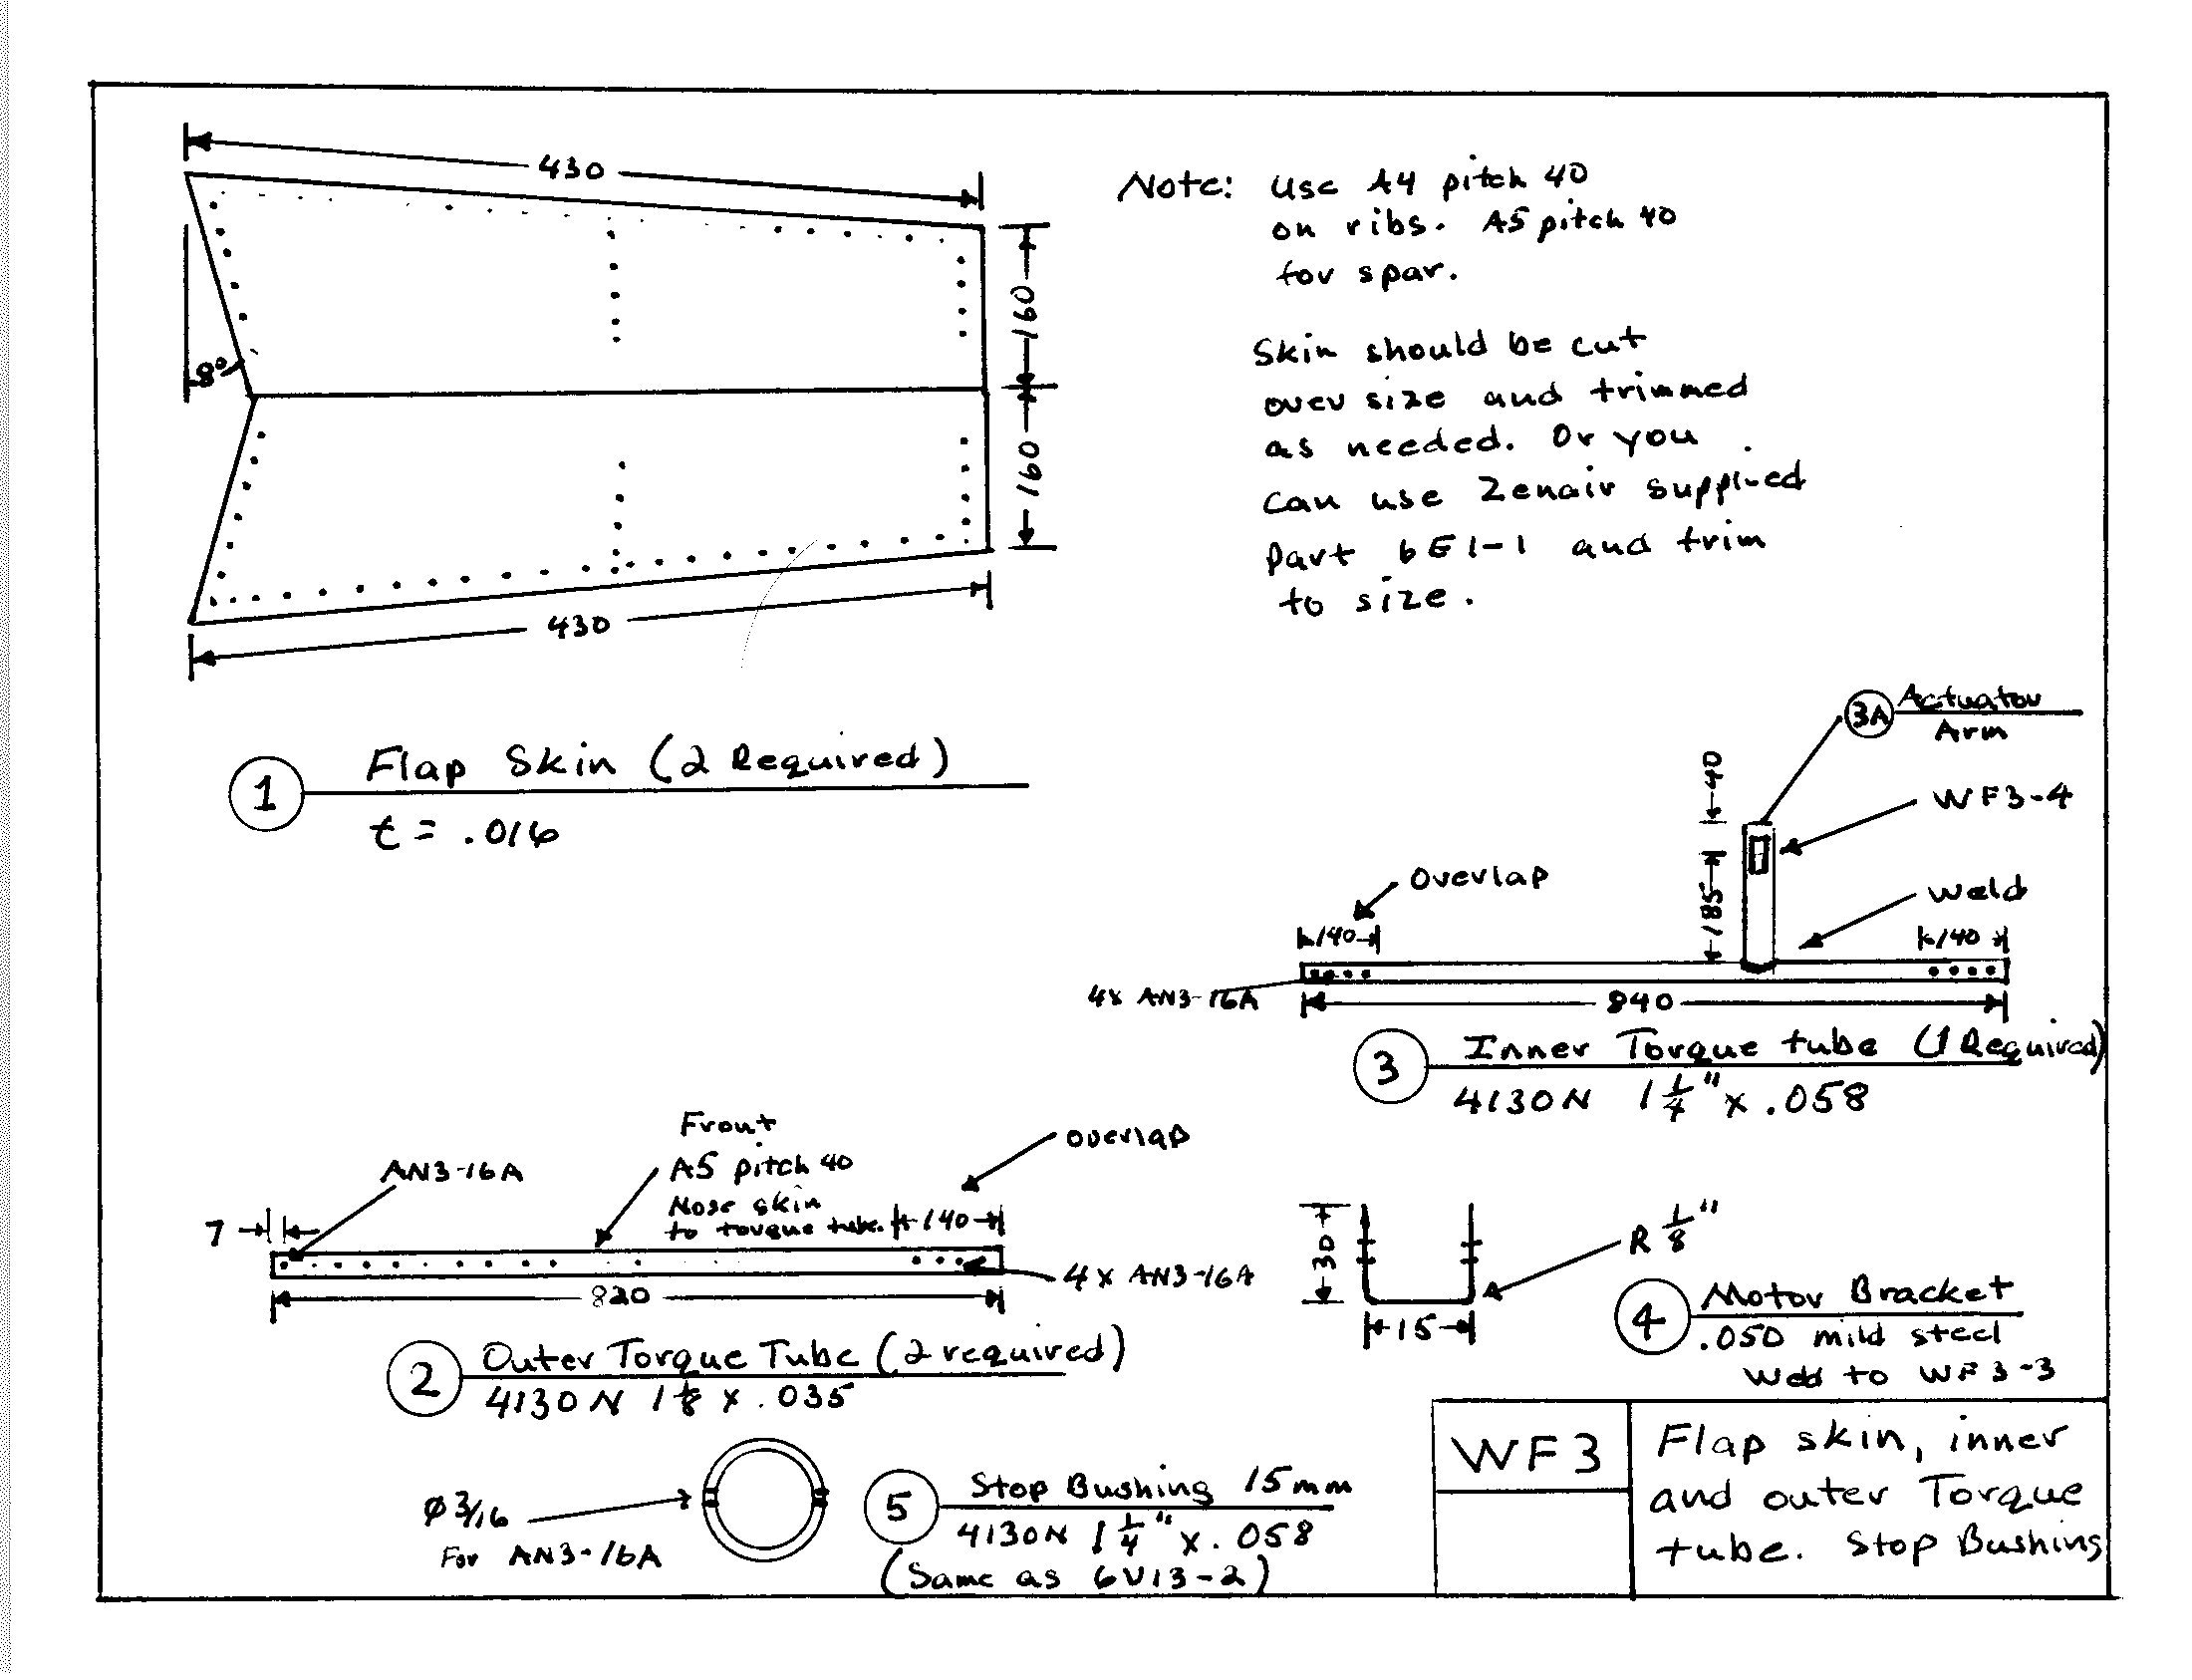 430
160
8°
160
430
Note: Use A4 pitch 40
on ribs. A5 pitch 40
for spar.
Skin should be cut
over size and trimmed
as needed. Or you
can use Zenair supplied
Part 6E1-1 and trim
to size.
1
Flap Skin (2 Required)
t = .016
3A Actuator
Arm
40
WF3-4
Overlap
185
Weld
140
140
4x AN3-16A
840
3
Inner Torque tube (1 Required)
4130N 1 1/4" x .058
Front
A5 pitch 40
Nose skin
to torque tube.
overlap
AN3-16A
7
140
4 x AN3-16A
820
2
Outer Torque Tube (2 required)
4130N 1 1/8 x .035
30
R 1/8"
15
4
Motor Bracket
.050 mild steel
Weld to WF3-3
Ø 3/16
For AN3-16A
5
Stop Bushing 15mm
4130N 1 1/4" x .058
(Same as 6V13-2)
WF3
Flap skin, inner
and outer Torque
tube. Stop Bushing